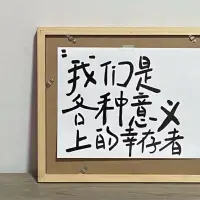 "我们是
各种意义
上的幸存者